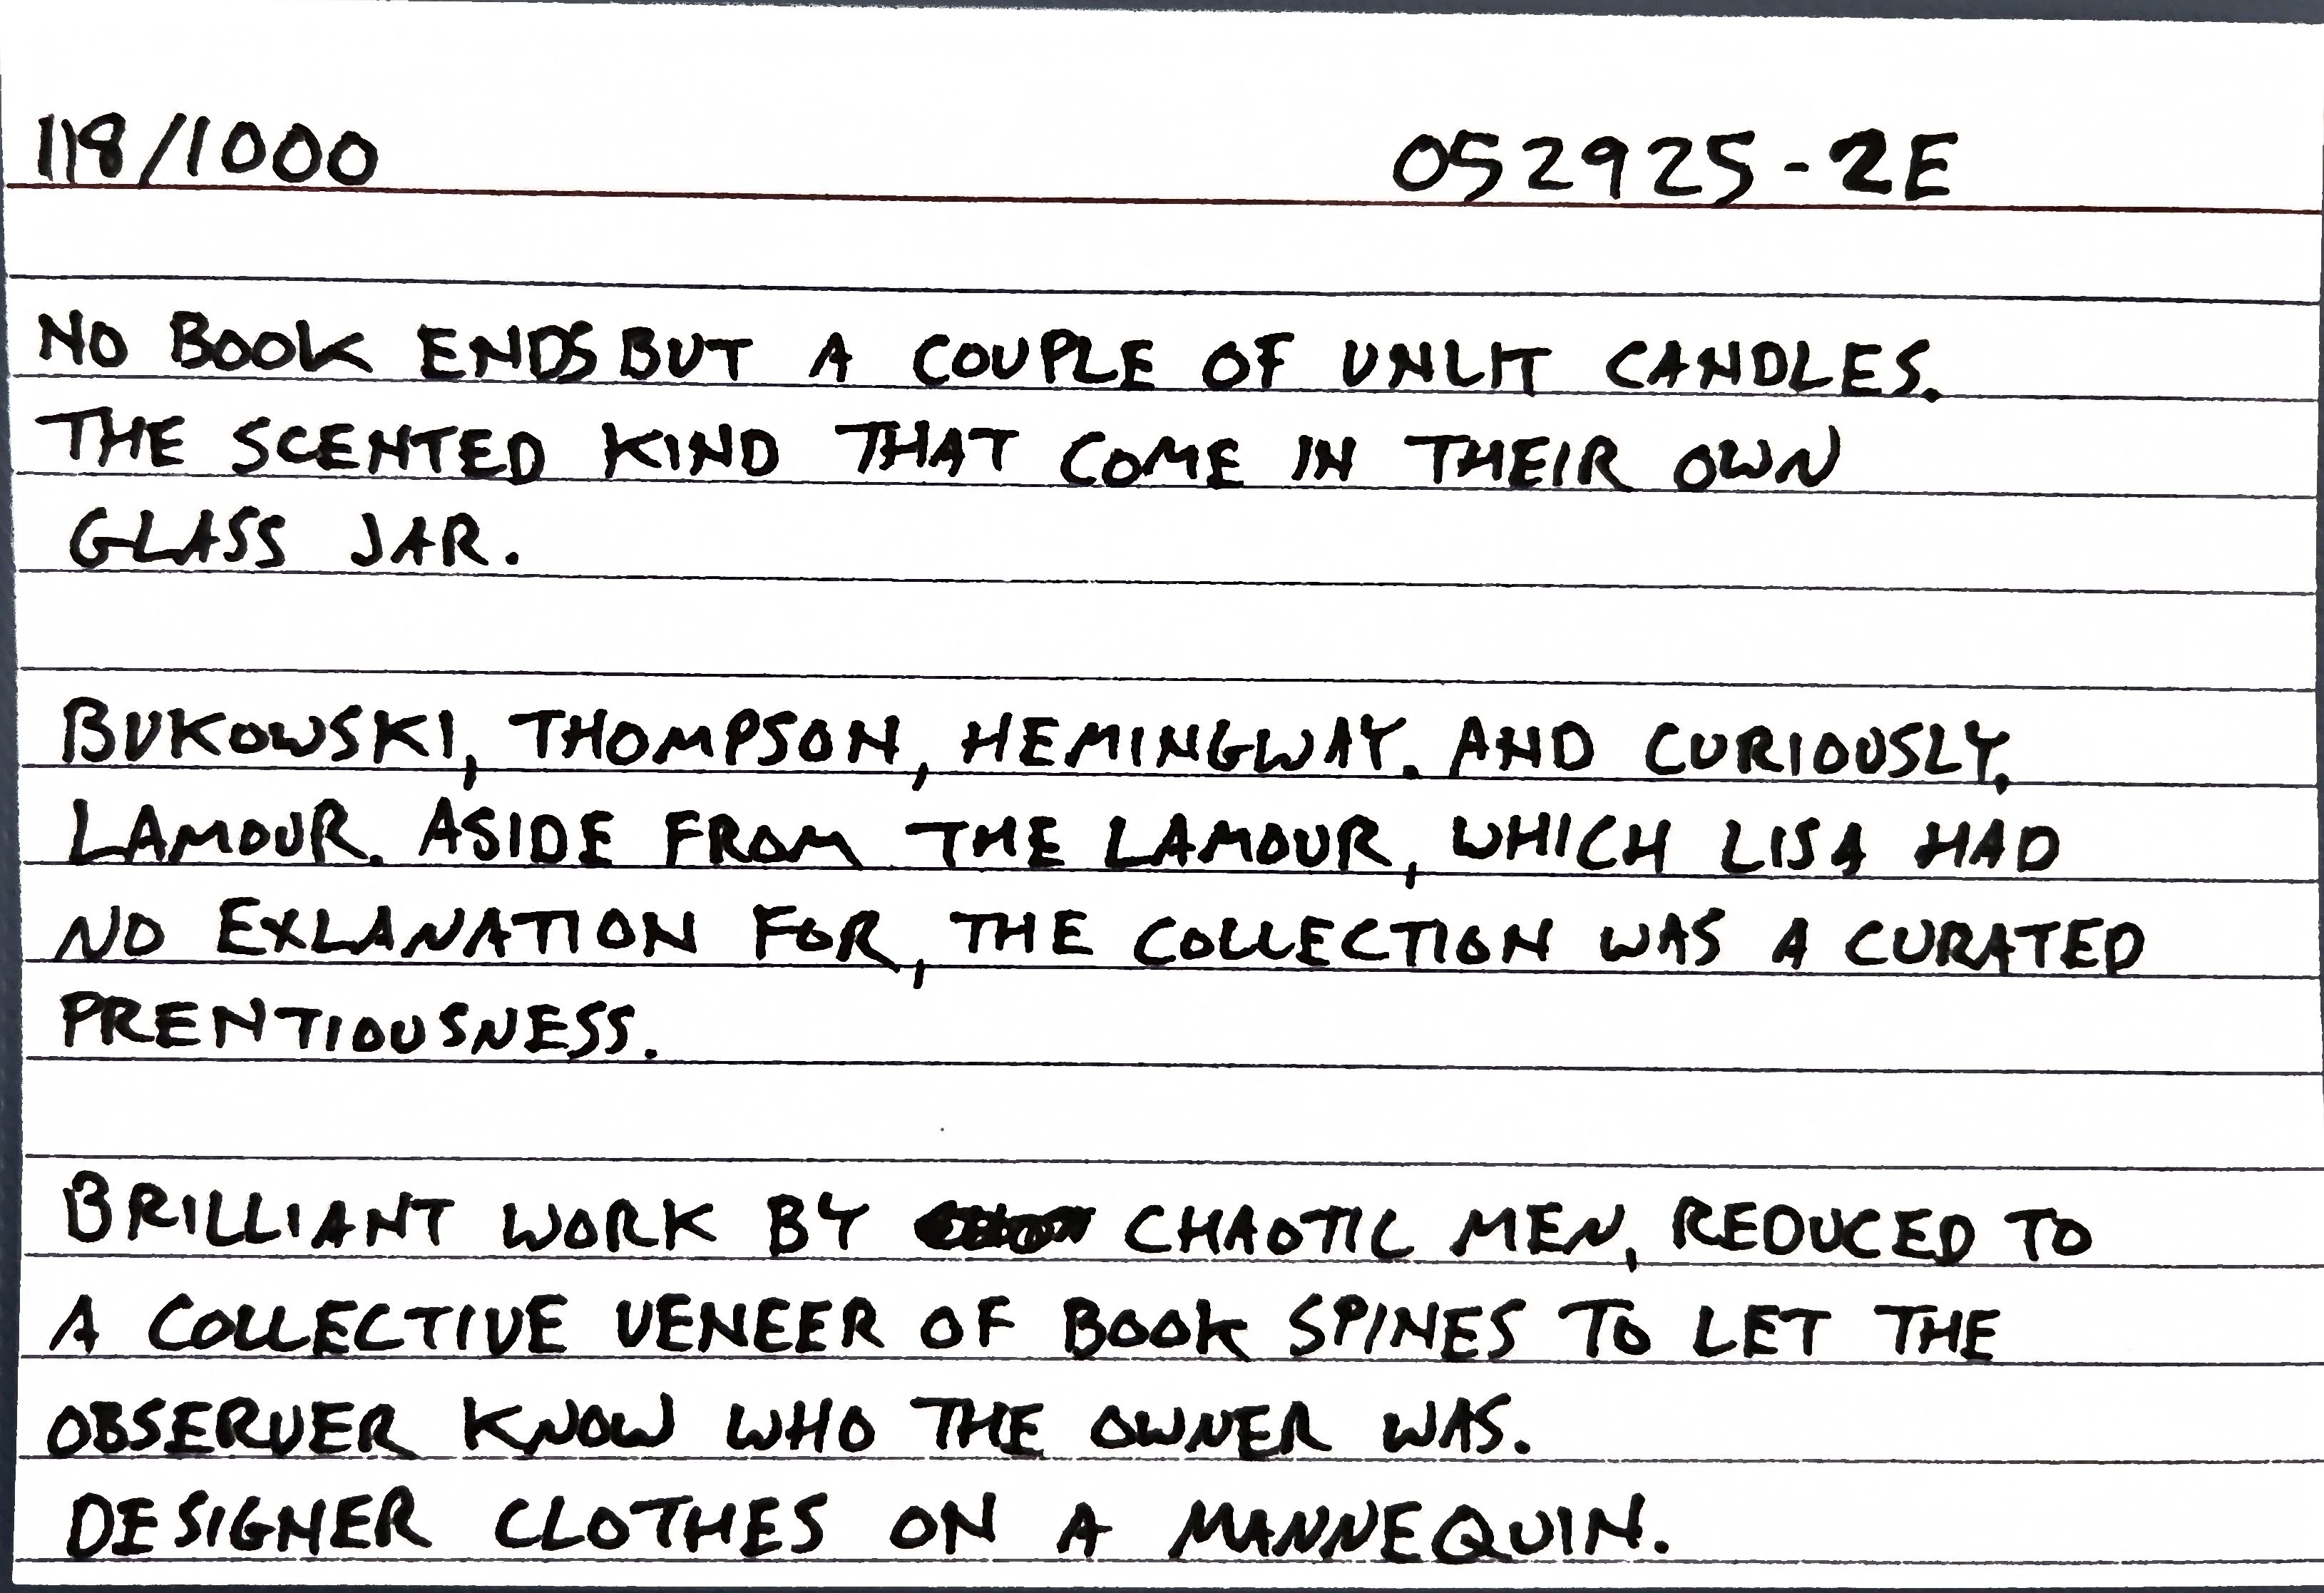 118/1000 052925-2E
NO BOOK ENDS BUT A COUPLE OF UNLIT CANDLES.
THE SCENTED KIND THAT COME IN THEIR OWN
GLASS JAR.
BUKOWSKI, THOMPSON, HEMINGWAY. AND CURIOUSLY,
LAMOUR. ASIDE FROM THE LAMOUR, WHICH LISA HAD
NO EXLANATION FOR, THE COLLECTION WAS A CURATED
PRENTIOUSNESS.
BRILLIANT WORK BY CHAOTIC MEN, REDUCED TO
A COLLECTIVE VENEER OF BOOK SPINES TO LET THE
OBSERVER KNOW WHO THE OWNER WAS.
DESIGNER CLOTHES ON A MANNEQUIN.